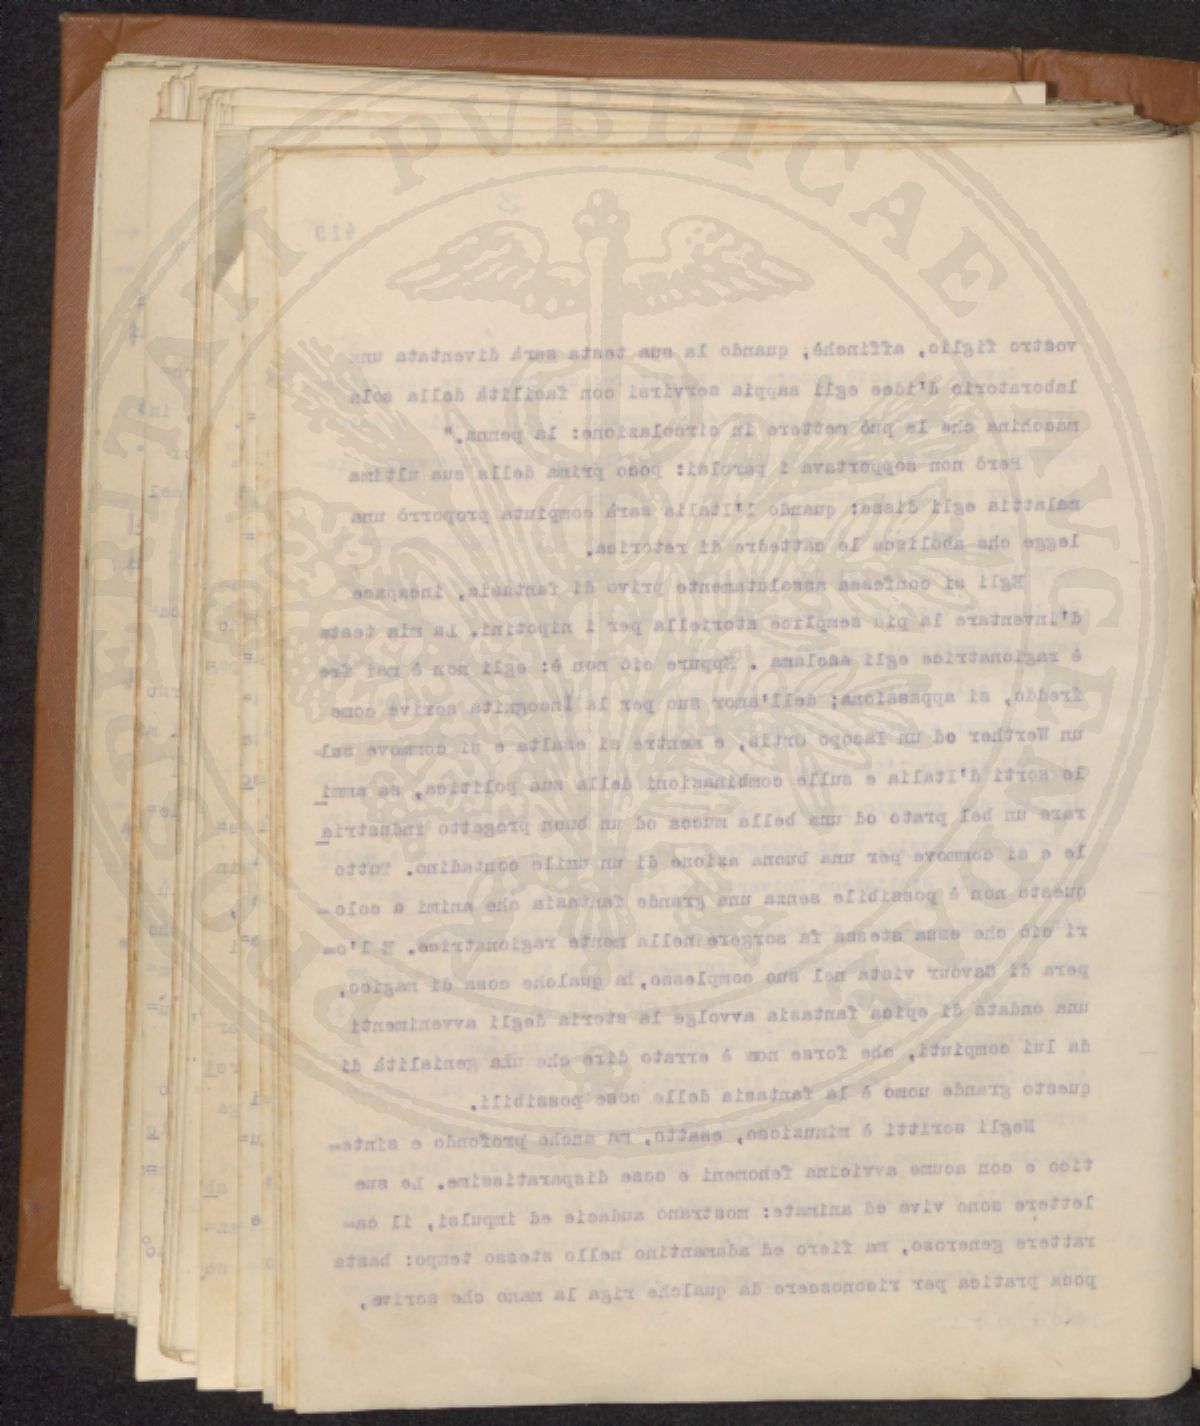 419
vostro figlio, affinchè, quando la sua testa sarà diventata un
laboratorio d'idee egli sappia servirsi con facilità della sola
macchina che le può mettere in circolazione: la penna."
Però non sopportava i parolai: poco prima della sua ultima
malattia egli disse: quando l'Italia sarà compiuta proporrò una
legge che abolisca le cattedre di retorica.
Egli si confessa assolutamente privo di fantasia, incapace
d'inventare la più semplice storiella per i nipotini. La mia testa
è ragionatrice egli esclama . Eppure ciò non è: egli non è mai
freddo, si appassiona; dell'amor suo per la Incognita scrive come
un Werther od un Iacopo Ortis, e mentre si esalta e si commove sul-
le sorti d'Italia e sulle combinazioni della sua politica, sa ammi
rare un bel prato od una bella mucca od un buon progetto industria
le e si commove per una buona azione di un umile contadino. Tutto
questo non è possibile senza una grande fantasia che animi e colo-
ri ciò che essa stessa fa sorgere nella mente ragionatrice. E l'o-
pera di Cavour vista nel suo complesso, ha qualche cosa di magico,
una ondata di epica fantasia avvolge la storia degli avvenimenti
da lui compiuti, che forse non è errato dire che una genialità di
questo grande uomo è la fantasia delle cose possibili.
Negli scritti è minuzioso, esatto, ma anche profondo e sinte-
tico e con acume avvicina fenomeni e cose disparatissime. Le sue
lettere sono vive ed animate: mostrano audacie ed impulsi, il ca-
rattere generoso, ma fiero ed adamantino nello stesso tempo: basta
poca pratica per riconoscere da qualche riga la mano che scrive,